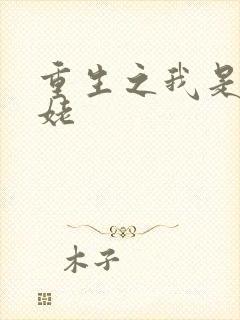 重生之我是
姥
木子